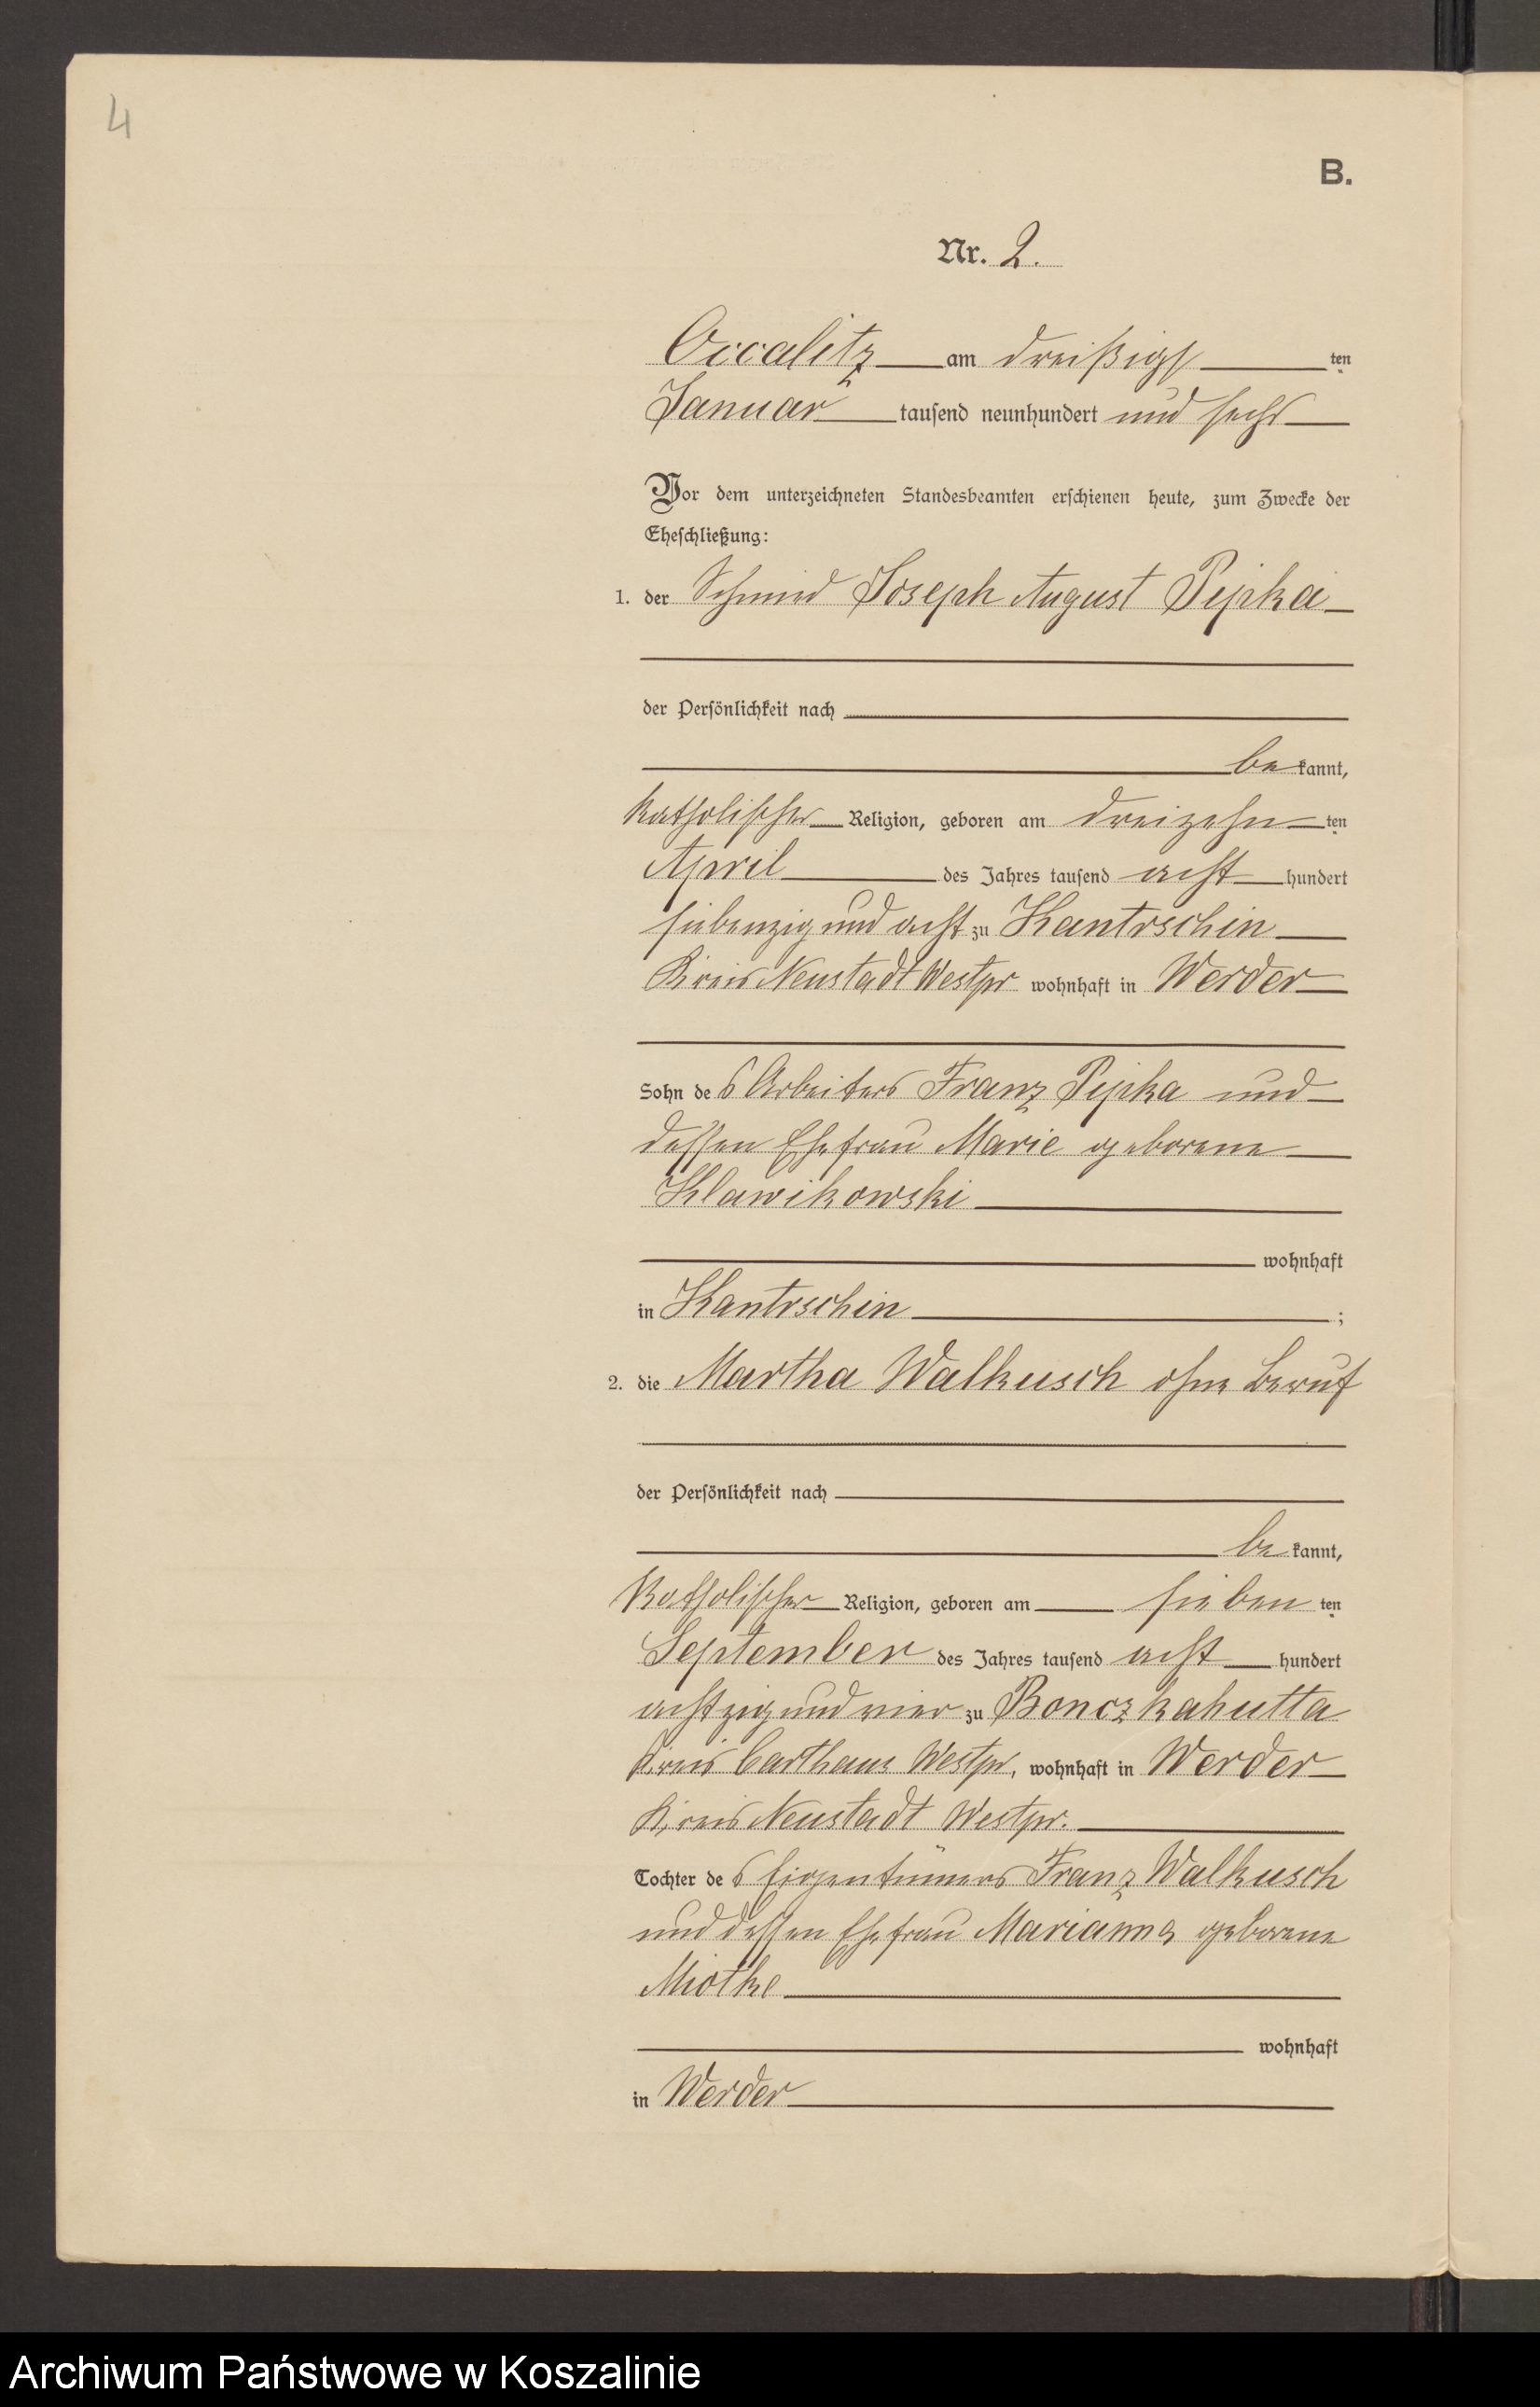 4
B.
Nr. 2.
Occalitz am dreißigs ten
Januar tausend neunhundert und sechs
Vor dem unterzeichneten Standesbeamten erschienen heute, zum Zwecke der
Eheschließung:
1. der Schmied Joseph August Pipka
der Persönlichkeit nach
be kannt,
katholischer Religion, geboren am dreizehn ten
April des Jahres tausend acht hundert
siebenzig und acht zu Kantrschin
Kreis Neustadt Westpr wohnhaft in Werder
Sohn de s Arbeiters Franz Pipka und
dessen Ehefrau Marie geborene
Klawikowski
wohnhaft
in Kantrschin ;
2. die Martha Walkusch ohne Beruf
der Persönlichkeit nach
be kannt,
katholischer Religion, geboren am sieben ten
September des Jahres tausend acht hundert
achtzig und vier zu Bonczkahutta
Kreis Carthaus Westpr, wohnhaft in Werder
Kreis Neustadt Westpr.
Tochter de s Eigentümers Franz Walkusch
und dessen Ehefrau Marianna geborene
Miotke
wohnhaft
in Werder
Archiwum Państwowe w Koszalinie